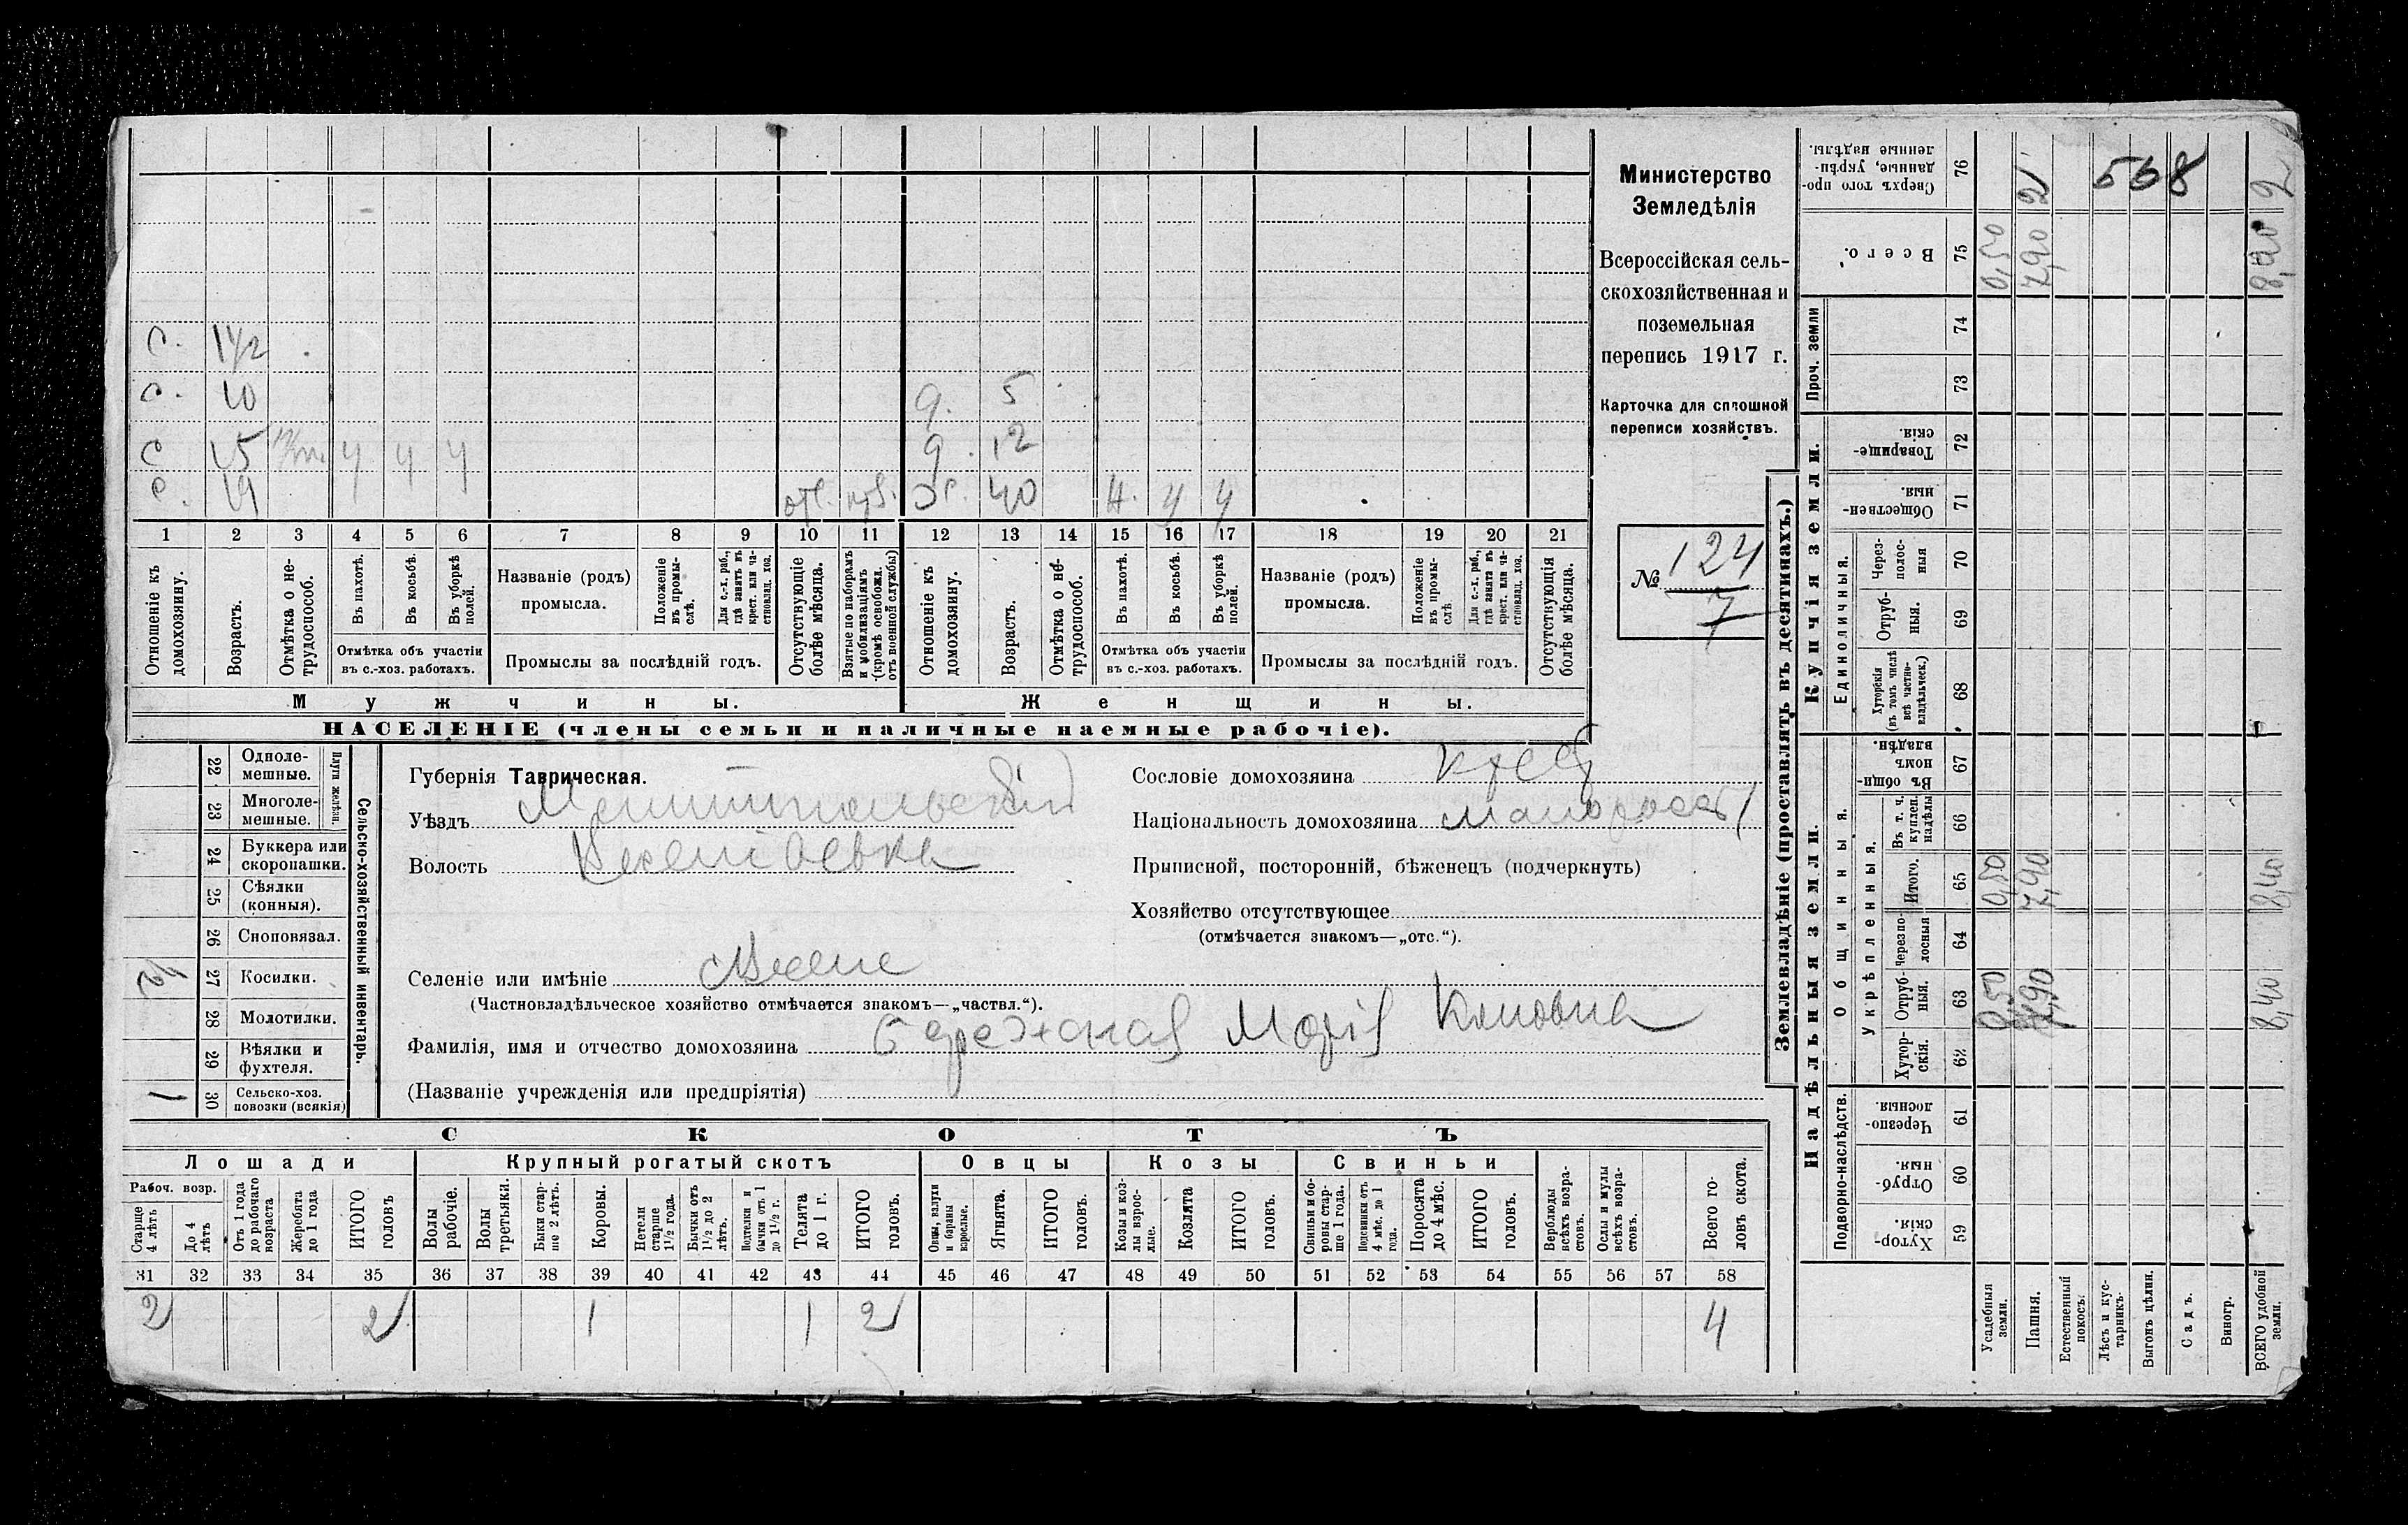 Министерство
Земледѣлія
Всероссійская сель-
скохозяйственная и
поземельная
перепись 1917 г.
Карточка для сплошной
переписи хозяйствъ.
№ 124
7
С. 1 1/2
С. 10
д. 5
С 15 у у у
д. 12
С. 19 отс. ж. 40 у у
1 2 3 4 5 6 7 8 9 10 11 12 13 14 15 16 17 18 19 20 21
Отношеніе къ домохозяину.
Возрастъ.
Отмѣтка о не-трудоспособ.
Въ пахотѣ.
Въ косьбѣ.
Въ уборкѣ полей.
Отмѣтка объ участіи
въ с.-хоз. работахъ.
Названіе (родъ)
промысла.
Положеніе въ промы-слѣ.
Для с.-х. раб., гдѣ занятъ въ крест. или ча-стновлад. хоз.
Промыслы за послѣдній годъ.
Отсутствующіе болѣе мѣсяца.
Взятые по наборамъ и мобилизаціямъ (кромѣ освобожд. отъ военной службы)
Отношеніе къ домохозяину.
Возрастъ.
Отмѣтка о не-трудоспособ.
Въ пахотѣ.
Въ косьбѣ.
Въ уборкѣ полей.
Отмѣтка объ участіи
въ с.-хоз. работахъ.
Названіе (родъ)
промысла.
Положеніе въ промы-слѣ
Для с.-х. раб., гдѣ занята въ крест. или ча-стновлад. хоз.
Промыслы за послѣдній годъ.
Отсутствующія болѣе мѣсяца.
Мужчины.
Женщины.
НАСЕЛЕНІЕ (члены семьи и наличные наемные рабочіе).
Сельско-хозяйственный инвентарь.
Плуги желѣзн.
22 Одноле-мешные.
23 Многоле-мешные.
24 Буккера или скоропашки.
25 Сѣялки (конныя).
26 Сноповязал.
27 Косилки. 1/2
28 Молотилки.
29 Вѣялки и фухтеля.
30 Сельско-хоз. повозки (всякія) 1
Губернія Таврическая.
Уѣздъ Мелитопольскій
Волость
Селеніе или имѣніе
(Частновладѣльческое хозяйство отмѣчается знакомъ—„частвл.“).
Фамилія, имя и отчество домохозяина Бережная Марія
(Названіе учрежденія или предпріятія)
Сословіе домохозяина
Національность домохозяина малоросс
Приписной, посторонній, бѣженецъ (подчеркнуть)
Хозяйство отсутствующее
(отмѣчается знакомъ—„отс.“).
СКОТЪ
Лошади
Рабоч. возр.
Старше 4 лѣтъ
До 4 лѣтъ
Отъ 1 года до рабочаго возраста
Жеребята до 1 года
ИТОГО головъ
Крупный рогатый скотъ
Волы рабочіе.
Волы третьяки.
Быки стар-ше 2 лѣтъ.
Коровы.
Нетели старше 1 1/2 года.
Бычки отъ 1 1/2 до 2 лѣтъ.
Подтелки и бычки отъ 1 до 1 1/2 г.
Телята до 1 г.
ИТОГО головъ.
Овцы
Овцы, валухи и бараны взрослые.
Ягнята.
ИТОГО головъ.
Козы
Козы и коз-лы взрос-лые.
Козлята
ИТОГО головъ.
Свиньи
Свиньи и бо-ровы стар-ше 1 года.
Подсвинки отъ 4 мѣс. до 1 года.
Поросята до 4 мѣс.
ИТОГО головъ.
Верблюды всѣхъ возра-стовъ.
Ослы и мулы всѣхъ возра-стовъ.
Всего го-ловъ скота.
31 32 33 34 35 36 37 38 39 40 41 42 43 44 45 46 47 48 49 50 51 52 53 54 55 56 57 58
2 2 1 1 2 4
Землевладѣніе (проставлять въ десятинахъ.)
Надѣльныя земли.
Подворно-наслѣдств.
Хутор-скія. 59
Отруб-ныя. 60
Черезпо-лосныя. 61
Общинныя.
Укрѣпленныя.
Хутор-скія. 62
Отруб-ныя. 63
Черезпо-лосныя 64
Итого. 65
Въ т. ч. куплен. надѣлы 66
Въ общи-номъ владѣн. 67
Купчія земли.
Единоличныя.
Хуторскія (въ томъ числѣ всѣ частно-владѣльческ.) 68
Отруб-ныя. 69
Через-полос-ныя 70
Обществен-ныя 71
Товарище-скія. 72
Проч. земли
73
74
Всего. 75
Сверхъ того про-данные, укрѣп-ленные надѣлы. 76
Усадебныя земли. 0,50 0,50 0,50
Пашня. 7,90 7,90 7,90 2
Естественный покосъ.
Лѣсъ и кус-тарникъ.
Выгонъ цѣлин.
Садъ.
Виногр.
ВСЕГО удобной земли. 8,40 8,40 2
568